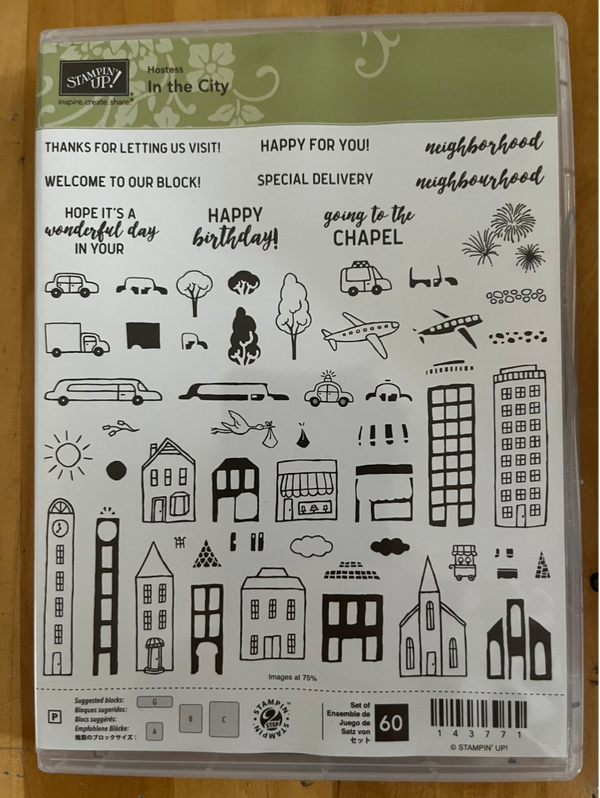 STAMPIN' UP!®
inspire.create.share.®
Hostess
In the City
THANKS FOR LETTING US VISIT!
HAPPY FOR YOU!
neighborhood
WELCOME TO OUR BLOCK!
SPECIAL DELIVERY
neighbourhood
HOPE IT'S A
wonderful day
IN YOUR
HAPPY
birthday!
going to the
CHAPEL
Images at 75%
P
Suggested blocks:
Bloques sugeridos:
Blocs suggérés:
Empfohlene Blöcke:
推奨のブロックサイズ:
G
A
B
C
STAMPIN'
2
STEP
STAMPIN'
Set of
Ensemble de
Juego de
Satz von
セット
60
143771
© STAMPIN' UP!